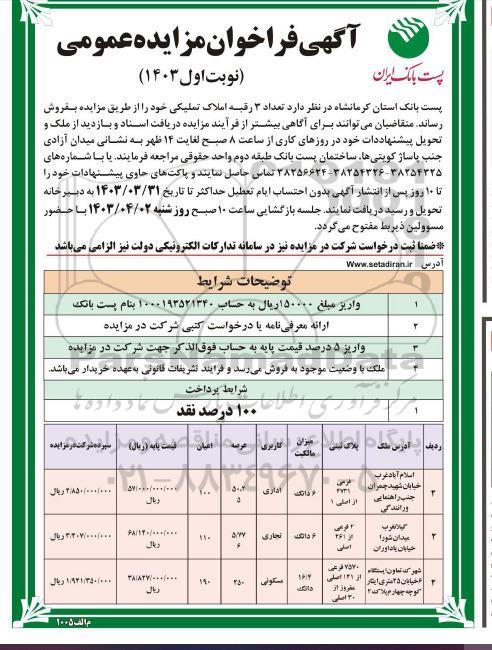 آگهی فراخوان مزایده عمومی
(نوبت اول ۱۴۰۳)
پست بانک ایران
پست بانک استان کرمانشاه در نظر دارد تعداد ۳ رقبه املاک تملیکی خود را از طریق مزایده بفروش
رساند. متقاضیان می‌توانند برای آگاهی بیشتر از فرآیند مزایده دریافت اسناد و بازدید از ملک و
تحویل پیشنهادات خود در روزهای کاری از ساعت ۸ صبح لغایت ۱۴ ظهر به نشانی میدان آزادی
جنب پاساژ کویتی‌ها، ساختمان پست بانک طبقه دوم واحد حقوقی مراجعه فرمایند. یا با شماره‌های
۳۸۲۵۴۳۲۵-۳۸۲۵۴۳۲۶-۳۸۲۵۶۶۲۴ تماس حاصل نمایند و پاکت‌های حاوی پیشنهادات خود را
تا ۱۰ روز پس از انتشار آگهی بدون احتساب ایام تعطیل حداکثر تا تاریخ ۱۴۰۳/۰۳/۳۱ به دبیرخانه
تحویل و رسید دریافت نمایند. جلسه بازگشایی ساعت ۱۰ صبح روز شنبه ۱۴۰۳/۰۴/۰۲ با حضور
مسوولین ذیربط مفتوح می‌گردد.
※ضمنا ثبت درخواست شرکت در مزایده نیز در سامانه تدارکات الکترونیکی دولت نیز الزامی می‌باشد
آدرس www.setadiran.ir
توضیحات شرایط
۱ واریز مبلغ ۱۵۰۰۰۰۰ریال به حساب ۱۰۰۰۱۹۳۵۲۱۳۴۰ بنام پست بانک
۲ ارائه معرفی‌نامه یا درخواست کتبی شرکت در مزایده
۳ واریز ۵ درصد قیمت پایه به حساب فوق‌الذکر جهت شرکت در مزایده
۴ ملک با وضعیت موجود به فروش می‌رسد و فرایند تشریفات قانونی به‌عهده خریدار می‌باشد.
شرایط پرداخت
۱ ۱۰۰ درصد نقد
ردیف آدرس ملک پلاک ثبتی میزان مالکیت کاربری عرصه اعیان قیمت پایه (ریال) سپرده شرکت در مزایده
۲ اسلام آباد غرب خیابان شهید چمران جنب راهنمایی ورانندگی فرعی ۴۷۳۱ از اصلی ۱ ۶ دانگ اداری ۵۰.۲۵ ۱۰۰ ۵۷/۰۰۰/۰۰۰/۰۰۰ ریال ۲/۸۵۰/۰۰۰/۰۰۰ ریال
۲ گیلانغرب میدان شورا خیابان یادآوران ۲ فرعی از ۲۶۱ اصلی ۶ دانگ تجاری ۵/۷۷۶ ۱۱۰ ۶۸/۱۴۰/۰۰۰/۰۰۰ ریال ۳/۴۰۷/۰۰۰/۰۰۰ ریال
۲ شهرک تعاون ایستگاه ۶ خیابان ۲۵متری ایثار کوچه چهارم پلاک ۲ ۷۵۷۰ فرعی از ۱۴۱ اصلی مفروز از ۳۰ اصلی ۱۶/۴ دانگ مسکونی ۲۵۰ ۱۹۰ ۳۸/۸۲۷/۰۰۰/۰۰۰ ریال ۱/۹۴۱/۳۵۰/۰۰۰ ریال
م الف ۱۰۰۵
ParsNamadData
۰۲۱-۸۸۳۴۹۶۷۰-۵